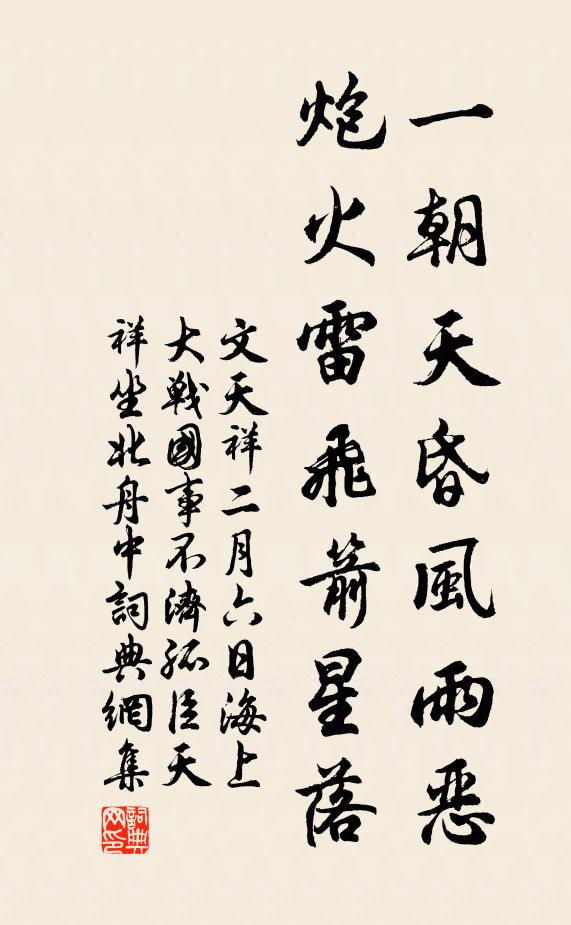 一朝天昏風雨惡
炮火雷飛箭星落
文天祥二月六日海上
大戰國事不濟孤臣天
祥坐北舟中詞典網集
詞典网印